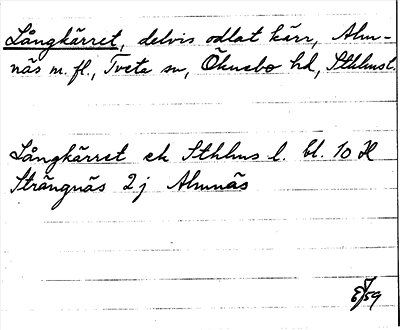 Långkärret, delvis odlat kärr, Alm-
näs m. fl., Tveta sn, Öknebo hd, Sthlms l.
Långkärret ek Sthlms l. bl. 10 H
Strängnäs 2 j Almnäs
59